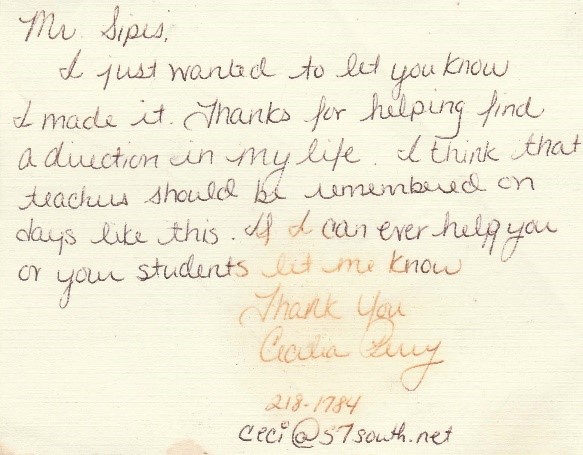 Mr. Sipes,
I just wanted to let you know
I made it. Thanks for helping find
a direction in my life. I think that
teachers should be remembered on
days like this. If I can ever help you
or your students let me know
Thank You
Cecilia Perry
218-1784
ceci@57south.net